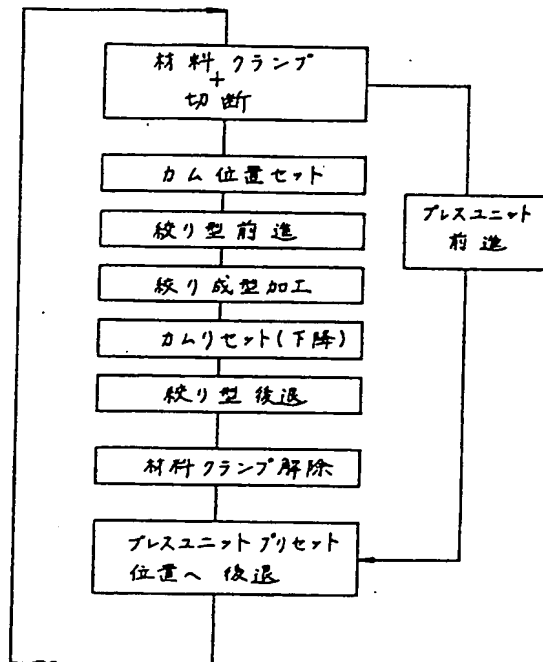 材料クランプ
+
切断
カム位置セット
絞り型前進
絞り成型加工
カムリセット(下降)
絞り型後退
材料クランプ解除
プレスユニットプリセット
位置へ後退
プレスユニット
前進